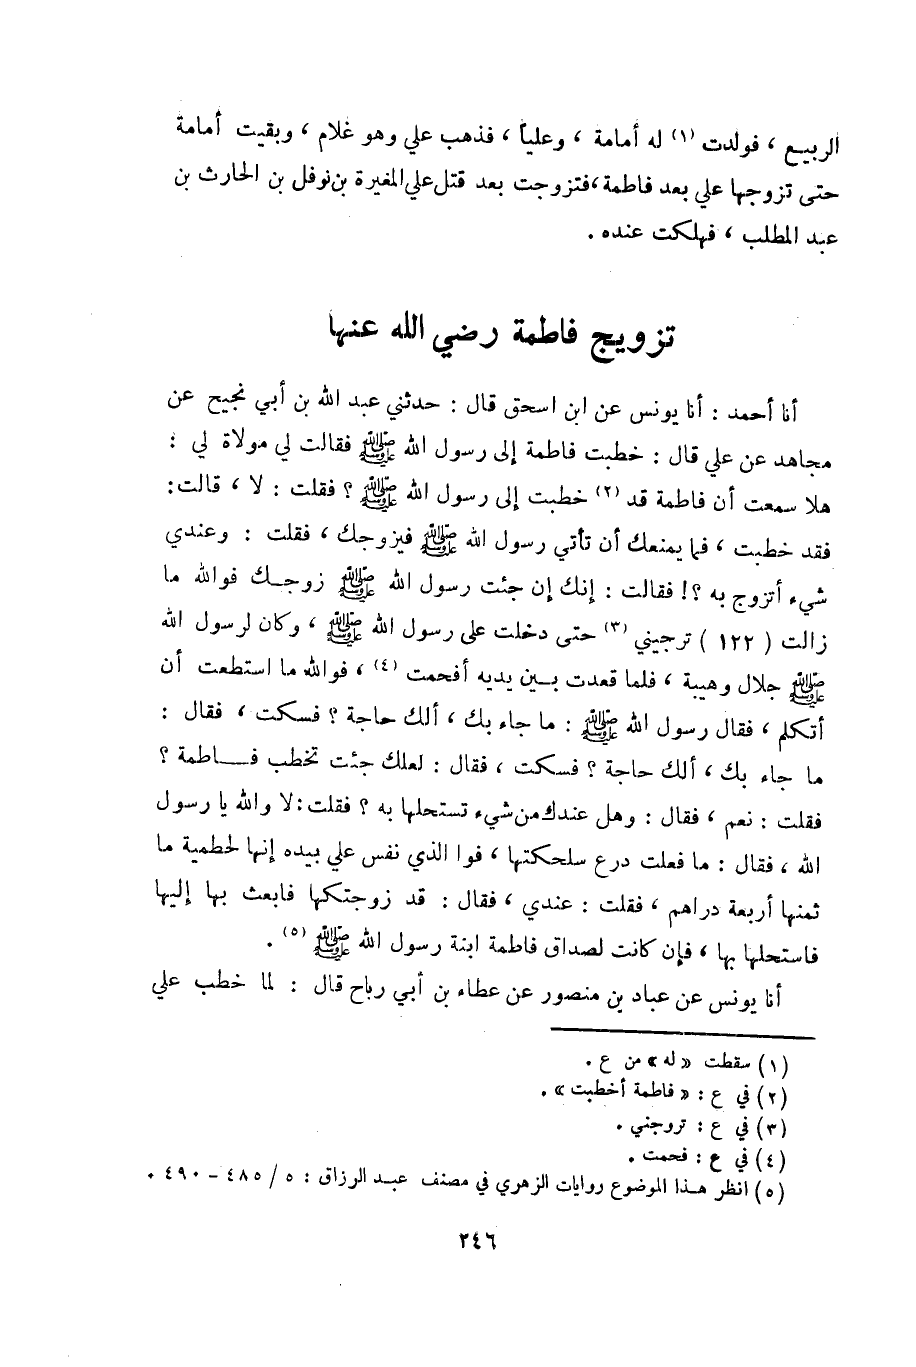 الربيع ، فولدت (١) له أمامة ، وعلياً ، فذهب علي وهو غلام ، وبقيت أمامة
حتى تزوجها علي بعد فاطمة ، فتزوجت بعد قتل علي المغيرة بن نوفل بن الحارث بن
عبد المطلب ، فهلكت عنده .
تزويج فاطمة رضي الله عنها
أنا أحمد : أنا يونس عن ابن اسحق قال : حدثني عبد الله بن أبي نجيح عن
مجاهد عن علي قال : خطبت فاطمة إلى رسول الله ﷺ فقالت لي مولاة لي :
هلا سمعت أن فاطمة قد (٢) خطبت إلى رسول الله ﷺ ؟ فقلت : لا ، قالت :
فقد خطبت ، فما يمنعك أن تأتي رسول الله ﷺ فيزوجك ، فقلت : وعندي
شيء أتزوج به ؟! فقالت : إنك إن جئت رسول الله ﷺ زوجك فوالله ما
زالت ( ١٢٢ ) ترجيني (٣) حتى دخلت على رسول الله ﷺ ، وكان لرسول الله
ﷺ جلال وهيبة ، فلما قعدت بين يديه أفحمت (٤) ، فوالله ما استطعت أن
أتكلم ، فقال رسول الله ﷺ : ما جاء بك ، ألك حاجة ؟ فسكت ، فقال :
ما جاء بك ، ألك حاجة ؟ فسكت ، فقال : لعلك جئت تخطب فاطمة ؟
فقلت : نعم ، فقال : وهل عندك من شيء تستحلها به ؟ فقلت : لا والله يا رسول
الله ، فقال : ما فعلت درع سلحكتها ، فوا الذي نفس علي بيده إنها لحطمية ما
ثمنها أربعة دراهم ، فقلت : عندي ، فقال : قد زوجتكها فابعث بها إليها
فاستحلها بها ، فإن كانت لصداق فاطمة ابنة رسول الله ﷺ (٥) .
أنا يونس عن عباد بن منصور عن عطاء بن أبي رباح قال : لما خطب علي
(١) سقطت «له» من ع .
(٢) في ع : « فاطمة أخطبت » .
(٣) في ع : تروجني .
(٤) في ع : فحمت .
(٥) انظر هذا الموضوع روايات الزهري في مصنف عبد الرزاق : ٥ / ٤٨٥ – ٤٩٠ .
٢٤٦